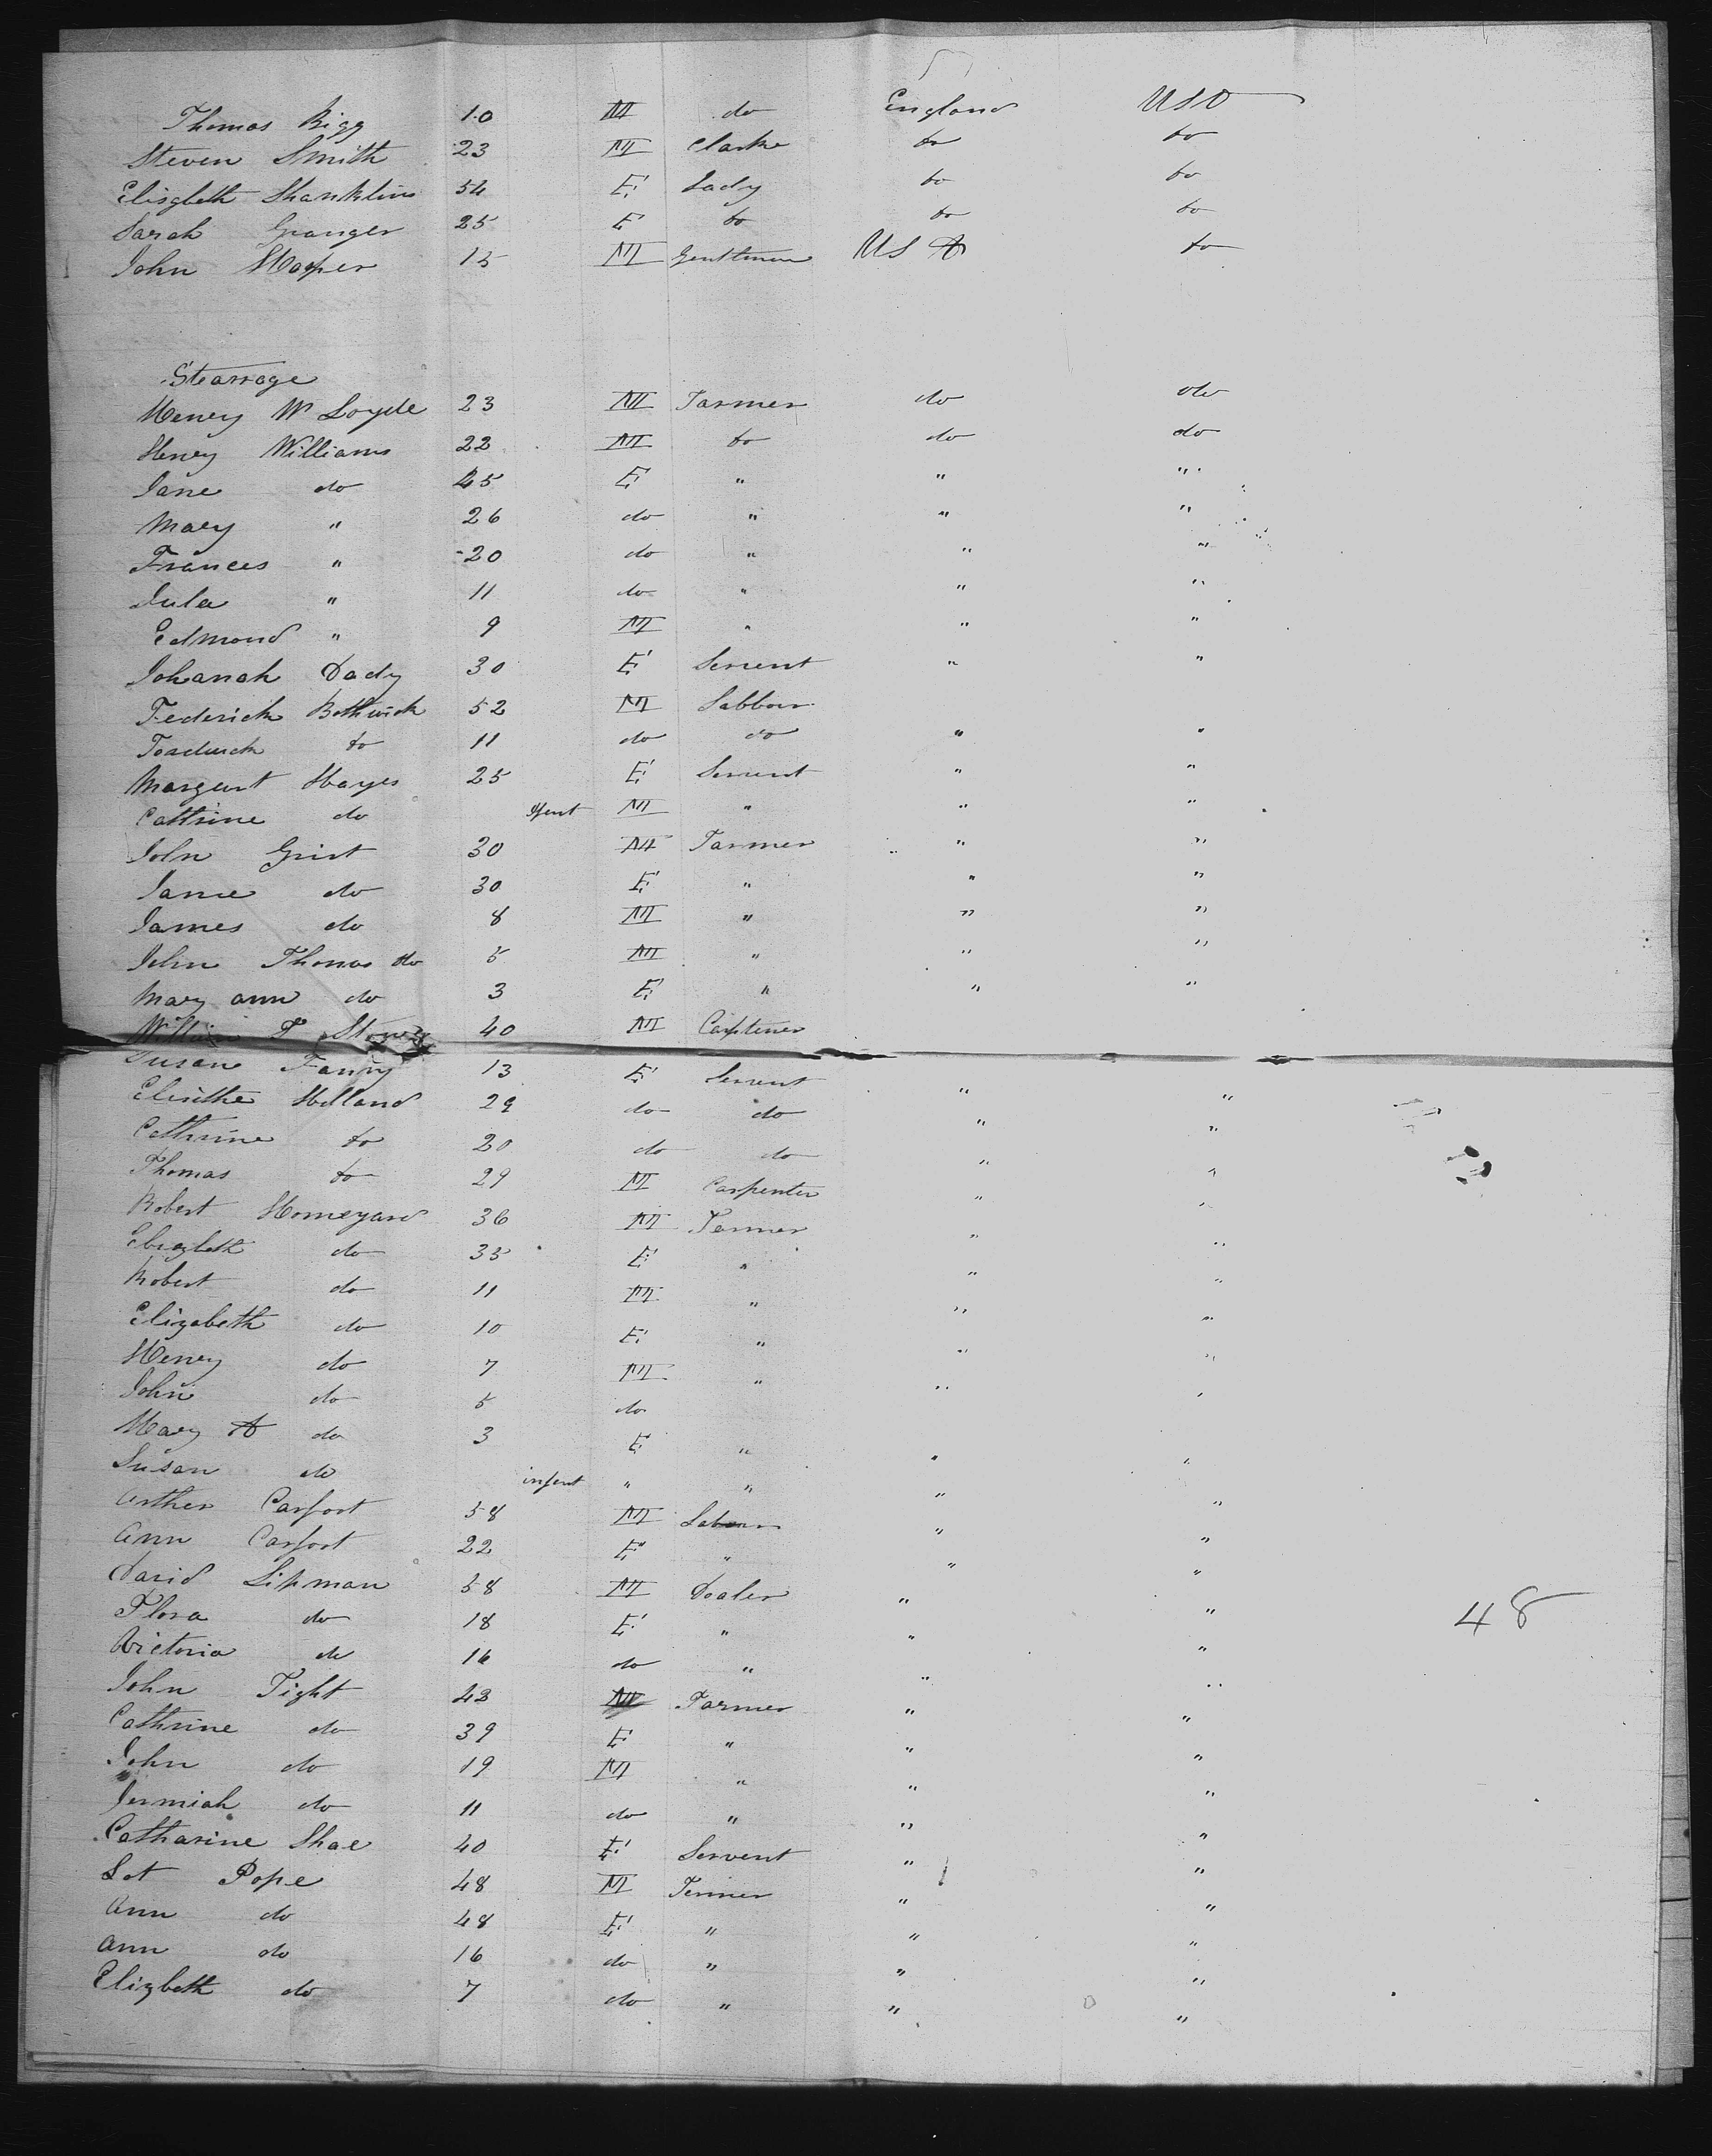 Thomas Bigg 10 M do England USA
Steven Smith 23 M Clarke do do
Elisgbeth Shanklin 54 F Lady do do
Sarah Granger 25 F do do do
John Hooper 15 M Gentlemen US A do
Stearrage
Heney W Loyde 23 M Farmer do do
Heney Williams 22 M do do do
Jane do 45 F " " "
Mary " 26 do " " "
Frances " 20 do " " "
Jula " 11 do " " "
Edmond " 9 M " " "
Johanah Dady 30 F Servent " "
Federick Bothwick 52 M Labbour
do 11 do do " "
Margeret Hayes 25 F Servent " "
Cathrine do M " " "
John Grist 30 M Farmer " "
Jane do 30 F " " "
James do 8 M " " "
John Thomas do 5 M " " "
Mary ann do 3 F " " "
William T 40 M
Susan Fanny 13 F Servent " "
Holland 29 do do " "
Cathrine do 20 do do " "
Thomas do 29 M Carpenter " "
Robert Homeyard 36 M Farmer " "
do 35 F " " "
Robert do 11 M " " "
Elizabeth do 10 F " " "
Heney do 7 M " " "
John do 5 do " "
Mary A do 3 F " " "
Susan do infent " " " "
Arther Carfort 58 M Labour " "
Ann Carfort 22 F " " "
David Lipman 58 M Dealer " "
Flora do 18 F " " " 48
Victoria do 16 do " " "
John Tight 43 M Farmer " "
Cathrine do 39 F " " "
John do 19 M " " "
Jermiah do 11 do " " "
Catharine Shae 40 F Servent " "
Lot Pope 48 M Fermer " "
Ann do 48 F " " "
Ann do 16 do " " "
Elizbeth do 7 do " " "